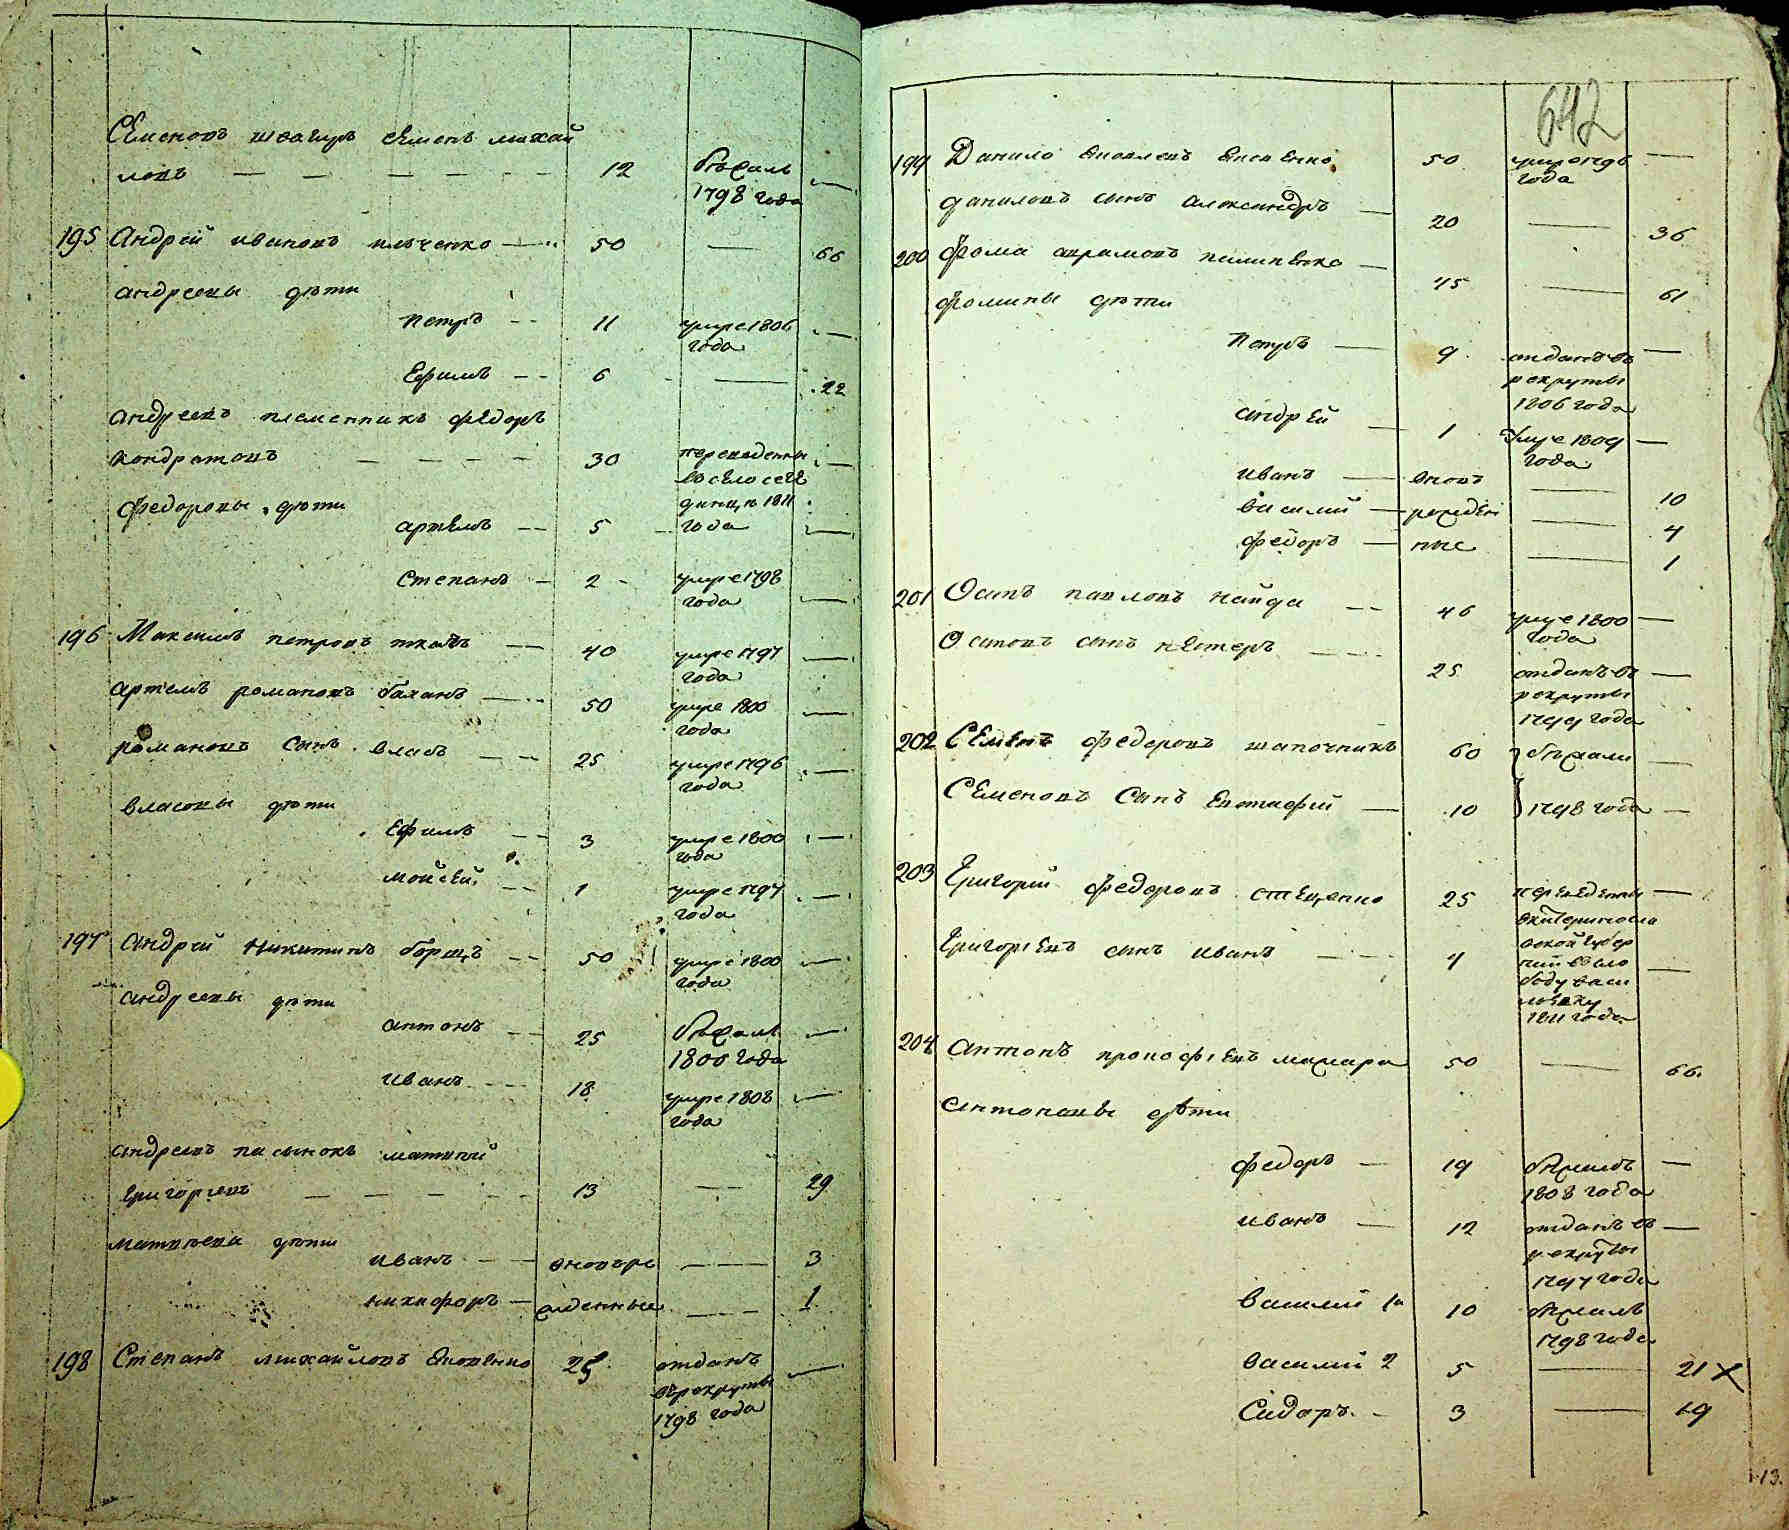 Семеновъ швагиръ семенъ михай
ловъ — — — — — 12 бѣжалъ —
1798 года
195 Андрей ивановъ ильченко — 50 — 66
андреевы дѣти
петръ — 11 умре 1806 —
года
Ефимъ — 6 — 22
андреевъ племенникъ федоръ
кондратовъ — — — — 30 переведенны —
во село
1811
федоровы дѣти
артемъ — 5 года —
степанъ — 2 умре 1798 —
года
196 Максимъ петровъ ткачь — 40 умре 1797 —
года
артемъ романовъ баланъ — 50 умре 1800 —
года
романовъ сынъ власъ — 25 умре 1796 —
года
власовы дѣти
Ефимъ — 3 умре 1800 —
года
мойсей — 1 умре 1797 —
года
197 андрей никитинъ борщъ — 50 умре 1800 —
года
андреевы дѣти
антонъ — 25 бѣжалъ —
1800 года
иванъ — 18 умре 1808 —
года
андреевъ пасынокъ матвѣй
григорьевъ — — — — 13 — 29
матвѣева дѣти
иванъ — вновьро — 3
никифоръ — жденные — 1
198 Степанъ михайловъ 25 отданъ —
в рекруты
1798 года
642
199 Данило яковлевъ 50 умре 1796 —
года
даниловъ сынъ александръ — 20 — 36
200 Фома аврамовъ пилипенко — 45 — 61
фомины дѣти
Петръ — 9 отданъ въ —
рекруты
1806 года
андрей — 1 умре 1809 —
года
иванъ — вновь — 10
василий — рожден — 4
федоръ — ные — 1
201 Осипъ павловъ найда — 46 умре 1800 —
года
Осиповъ сынъ нестеръ — 25 отданъ въ —
рекруты
1799 года
202 Семенъ федоровъ шапочникъ 60 бѣжали —
Семеновъ сынъ Евстафий — 10 1798 года —
203 Григорий федоровъ стеценко 25 переведенны —
екатериносла
вской губер
Григорьевъ сынъ иванъ — 4 нии во сло —
боду васи
ловку
1811 года
204 антонъ прокофьевъ мажара 50 — 66
антоновы дѣти
федоръ — 19 бѣжалъ —
1808 года
иванъ — 12 отданъ въ —
рекруты
1797 года
василий 1й 10 бѣжалъ
1798 года
василий 2 5 — 21 х
Сидоръ — 3 — 19
13